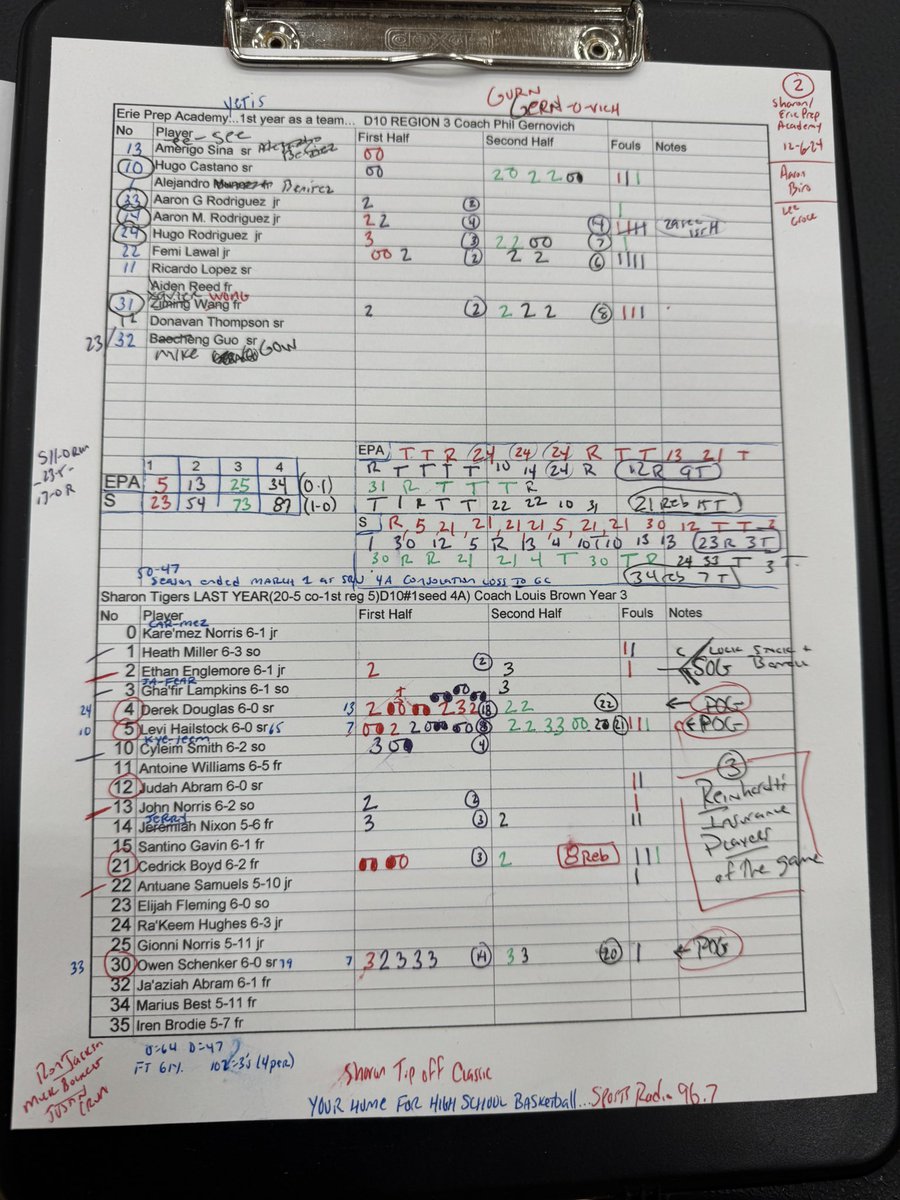 yetis
GURN
GERN-O-VICH
2
Sharon/
Erie Prep
Academy
12-6-24
Aaron
Biro
Erie Prep Academy...1st year as a team... D10 REGION 3 Coach Phil Gernovich
No Player First Half Second Half Fouls Notes
ee-see
13 Amerigo Sina sr 00
10 Hugo Castano sr 00 20 2 2 00 III
Alejandro Benirez
33 Aaron G Rodriguez jr 2 2
14 Aaron M. Rodriguez jr 2 2 4 14
24 Hugo Rodriguez jr 3 3 2 2 00 7
22 Femi Lawal jr 00 2 2 2 2 6 IIII
11 Ricardo Lopez sr
Aiden Reed fr
Xavier Wong
31 Ziming Wang fr 2 2 2 2 2 8 III
12 Donavan Thompson sr
23/32 Baecheng Guo sr
Mike GOW
1 2 3 4
EPA 5 13 25 34 (0-1)
S 23 54 73 87 (1-0)
EPA T T R 24 24 24 R T T 13 21 T
R T T T T 10 14 24 R 12R 9T
31 R T T T R
T 1 R T T 22 22 10 31 21 Reb 15T
S R, 5, 21, 21, 21 21 5, 21, 21 30 12 T T 2
1 30 12 5 R 13 4 10 T 10 13 13 23R 3T
30 R R 21 21 4 T 30 T R 24 33 T 3 T
34 reb 7 T
50-47
Season ended March 1 at SRU 4A Consolation loss to GC
Sharon Tigers LAST YEAR(20-5 co-1st reg 5)D10#1seed 4A) Coach Louis Brown Year 3
No Player First Half Second Half Fouls Notes
CAR-mez
0 Kare'mez Norris 6-1 jr
1 Heath Miller 6-3 so II
2 Ethan Englemore 6-1 jr 2 2 3 I SOG
JA-FEAR
3 Gha'fir Lampkins 6-1 so 3
24 4 Derek Douglas 6-0 sr 13 18 2 2 22 POG
10 5 Levi Hailstock 6-0 sr 65 7 8 2 2 3 3 00 20 21 III POG
Kye-leem
10 Cyleim Smith 6-2 so 3 00 4
11 Antoine Williams 6-5 fr
12 Judah Abram 6-0 sr II
13 John Norris 6-2 so 2 2 I
JERRY
14 Jeremiah Nixon 5-6 fr 3 3 2 II
15 Santino Gavin 6-1 fr
21 Cedrick Boyd 6-2 fr 3 2 8 Reb III
22 Antuane Samuels 5-10 jr I
23 Elijah Fleming 6-0 so
24 Ra'Keem Hughes 6-3 jr
25 Gionni Norris 5-11 jr
33 30 Owen Schenker 6-0 sr 79 7 3 2 3 3 3 14 3 3 20 I POG
32 Ja'aziah Abram 6-1 fr
34 Marius Best 5-11 fr
35 Iren Brodie 5-7 fr
3
Reinhardt
Insurance
Players
of the game
O=64 D=47
FT 61% 102-3's (4 per)
Ron Jackson
Sharon Tip off Classic
YOUR HOME FOR HIGH SCHOOL BASKETBALL...SPORTS Radio 96.7